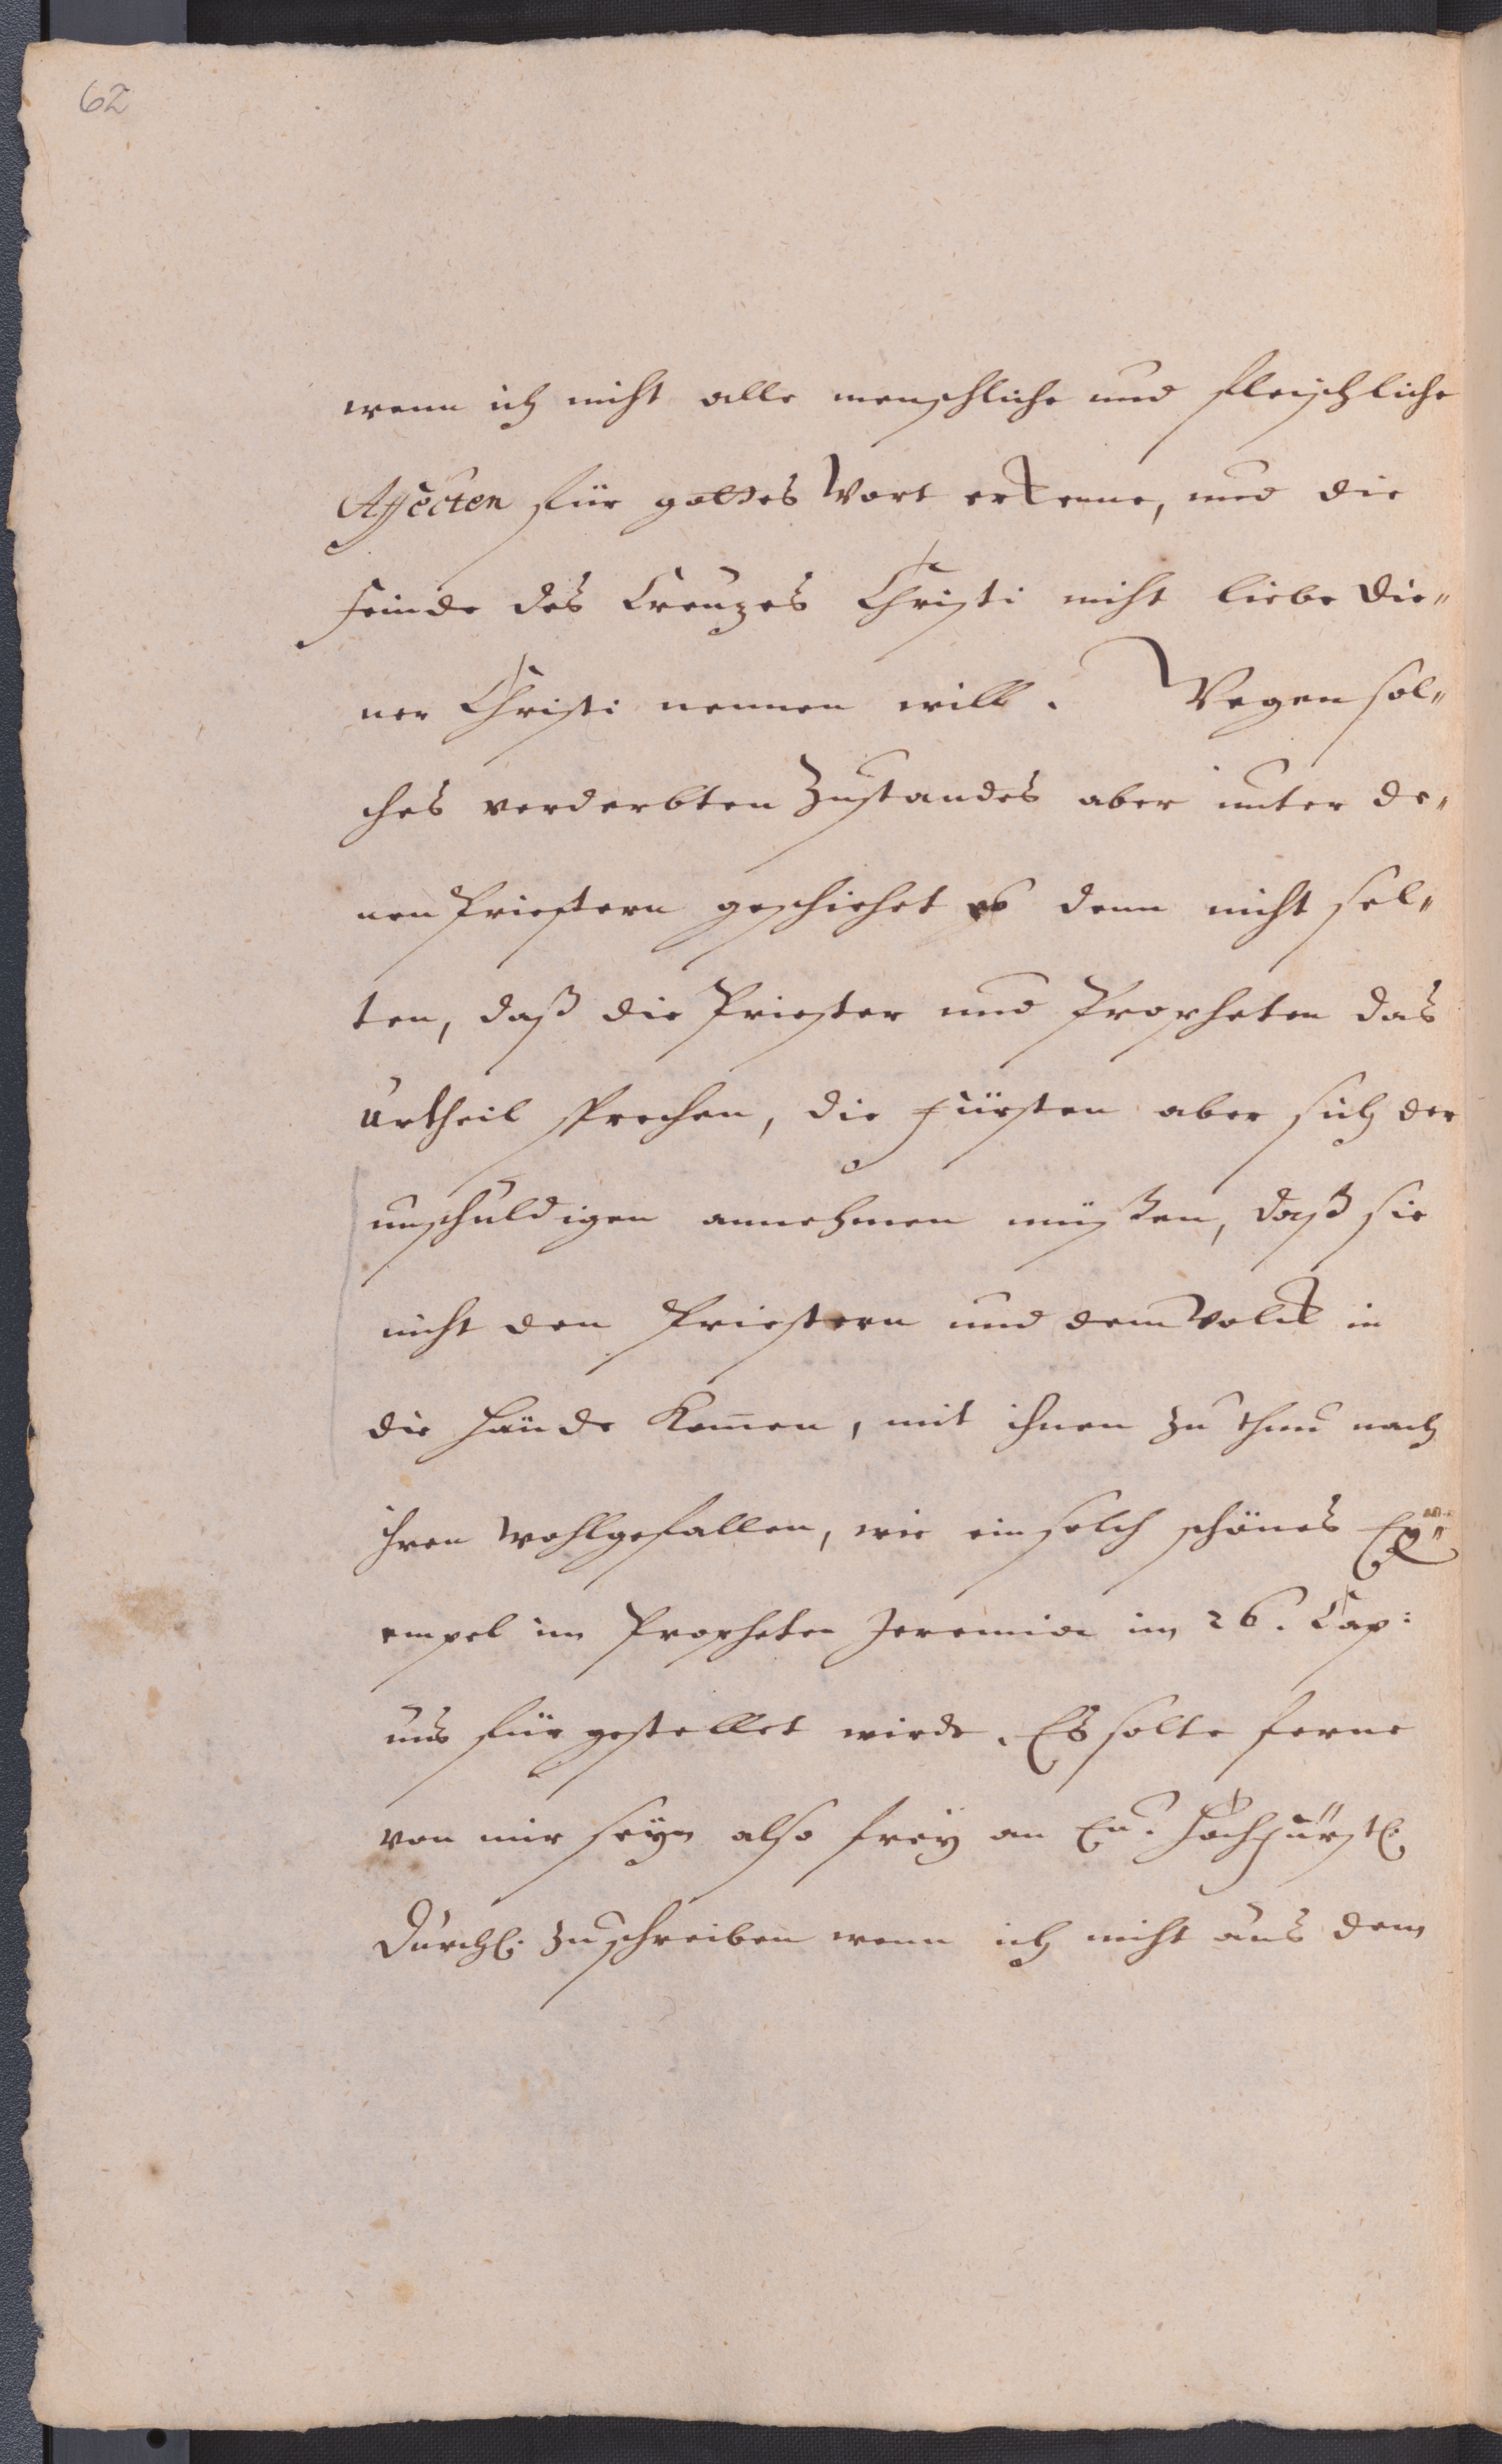 62
wenn ich nicht alle menschliche und fleischliche
Affecten für gottes Wort erkenne, und die
feinde des Creuzes Christi nicht liebe Die„
ner Christi nennen will. Wegen sol„
ches verderbten Zustandes aber unter de„
nen Priestern geschiehet es denn nicht sel„
ten, daß die Priester und Propheten das
Urtheil sprechen, die fürsten aber sich der
unschuldigen annehmen müßen, daß sie
nicht den Priestern und dem Volck in
die Hände kom̅en, mit ihnen zu thun nach
ihren wohlgefallen, wie ein solch schönes Ex„
empel im Propheten Jeremia im 26. Cap:
uns fürgestellet wird. Es solte ferne
von mir seyn also frey an Eu. Hochfürstl.
Durchl. zuschreiben wenn ich nicht aus dem